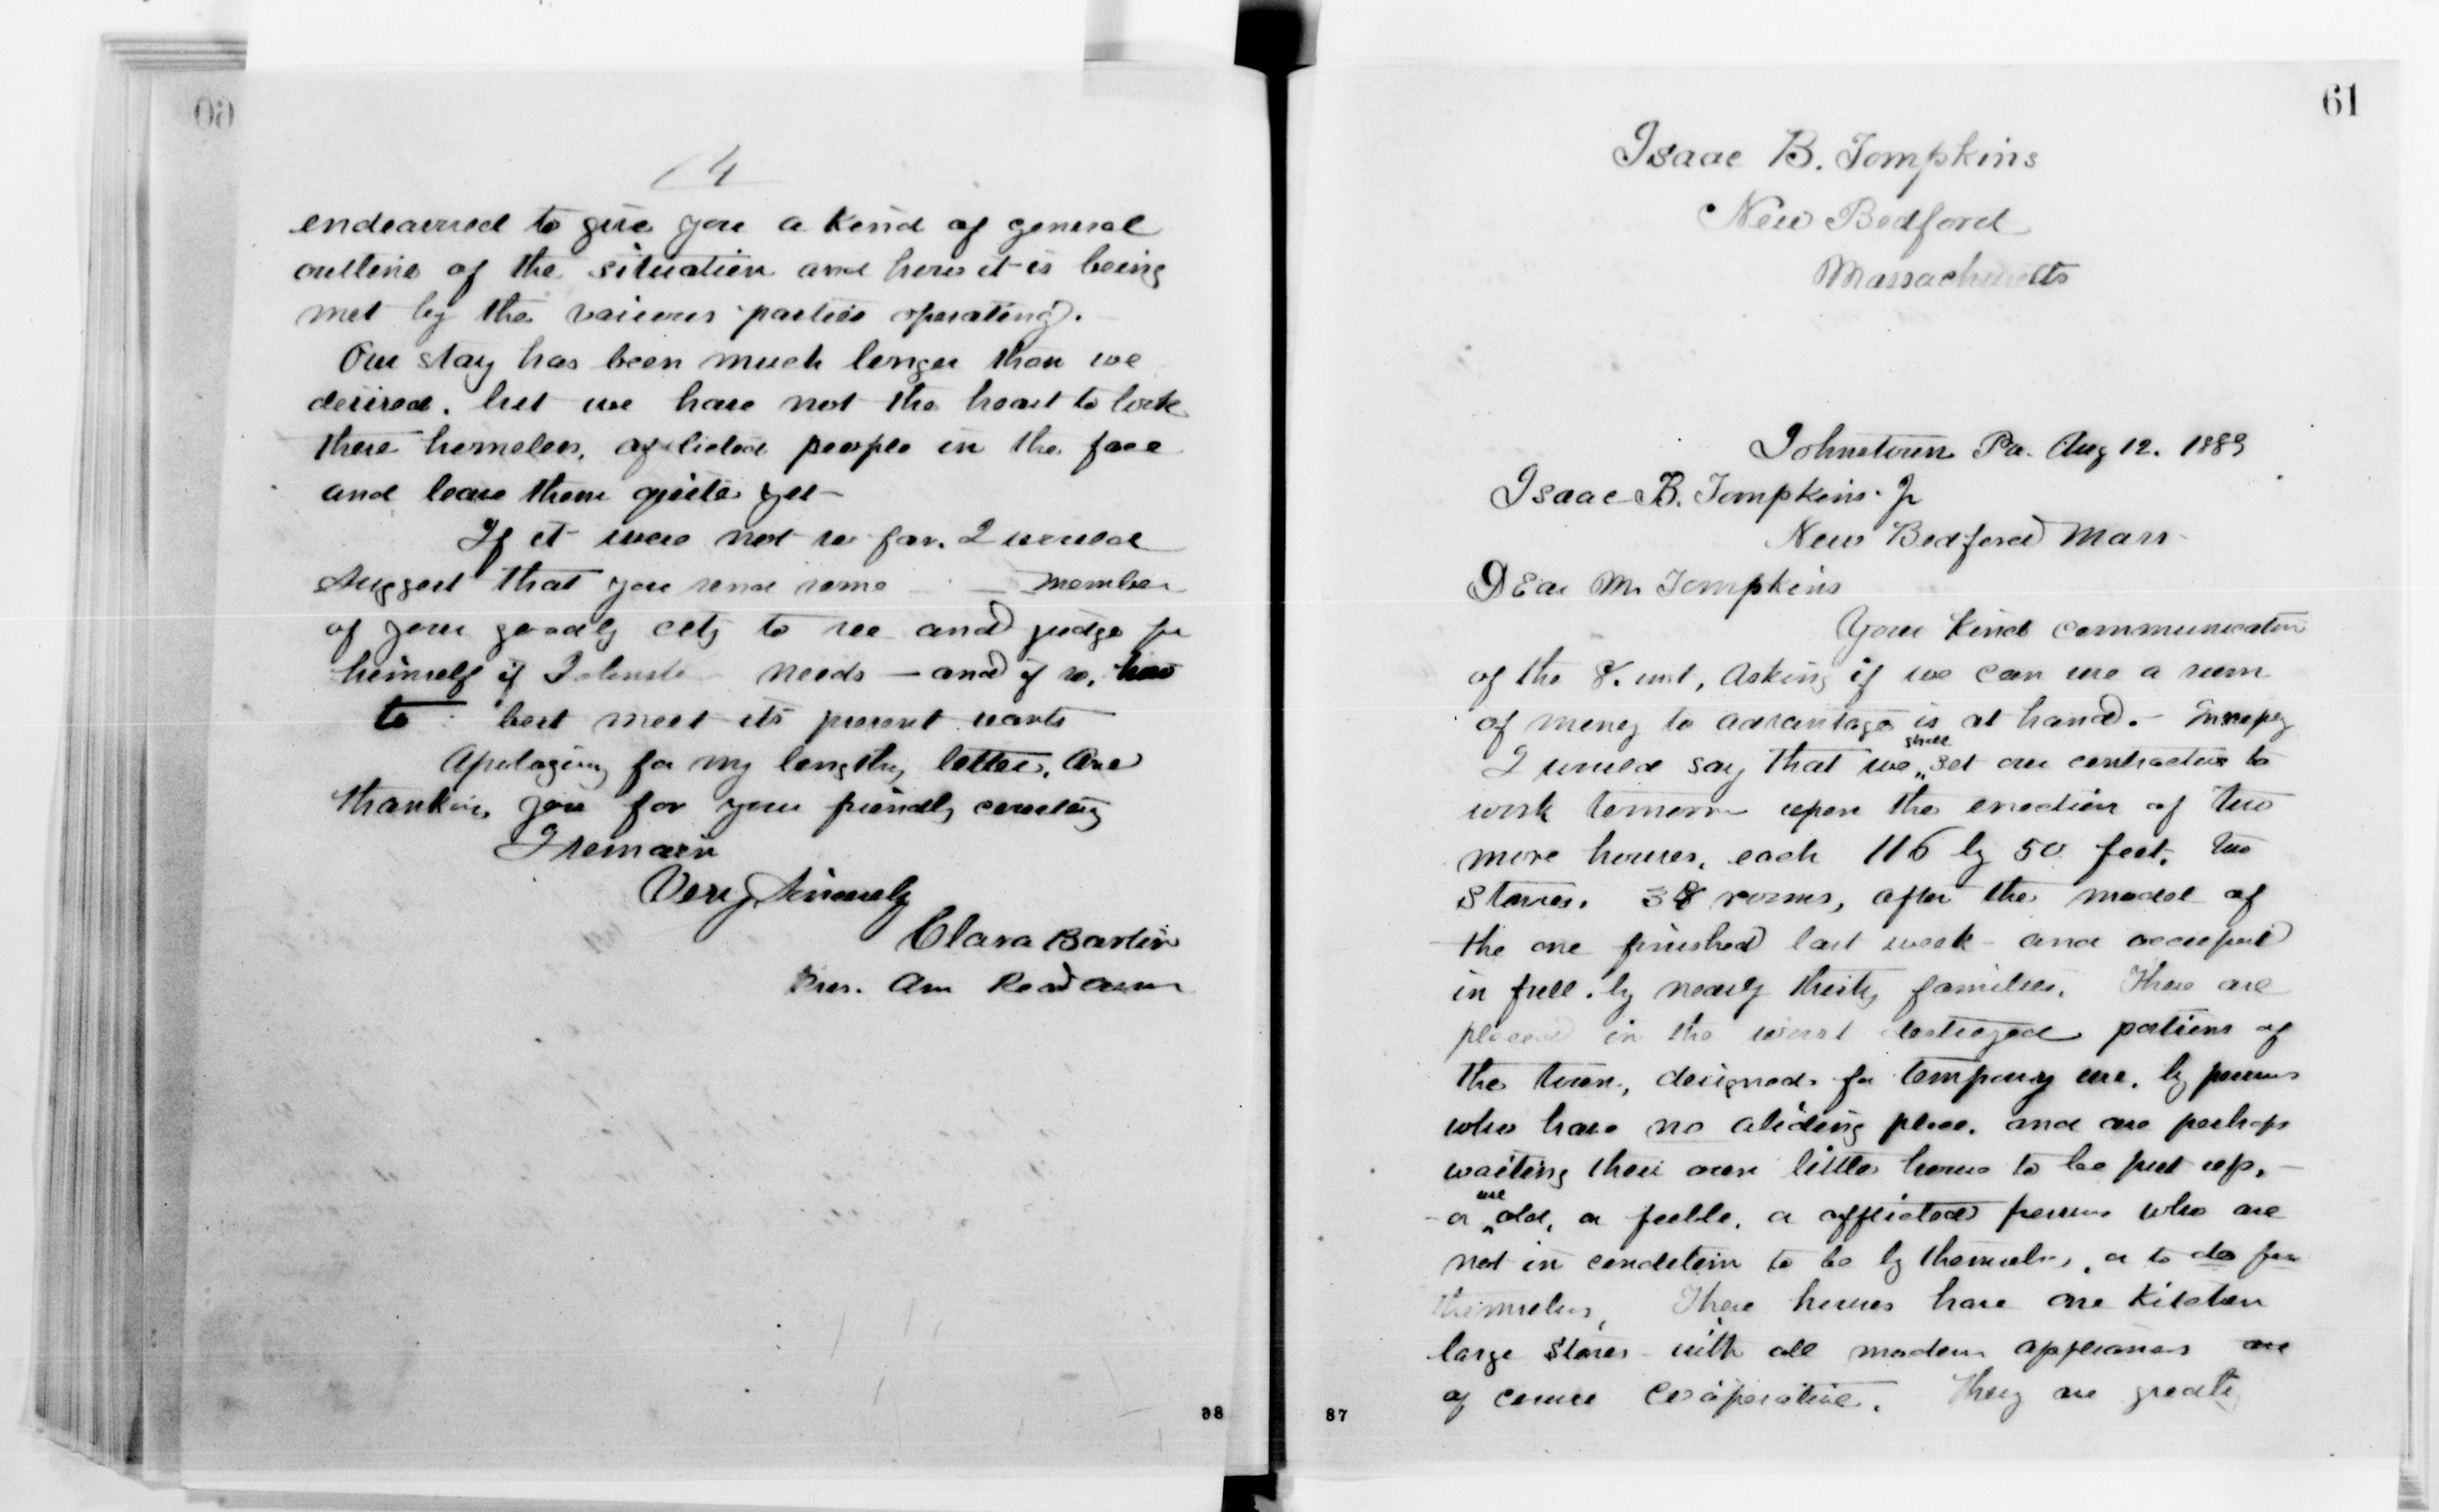 60
4
endeavored to give you a kind of general
outline of the situation and how it is being
met by the various parties operating.
Our stay has been much longer than we
desired. but we have not the heart to look
these homeless, aflicted people in the face
and leave them quite yet –
If it were not so far. I would
suggest that you send some member
of your goodly city to see and judge for
himself if Johnstown needs – and if so, how
to best meet its present wants
Apologing for my lengthy letter, and
thanking you for your friendly courtesy
I remain
Very Sincerely
Clara Barton
Pres. Am Red Cross
98
61
Isaac B. Tompkins
New Bedford
Massachusetts
Johnstown Pa. Aug 12. 1889
Isaac B. Tompkins. Jr
New Bedford Mass
Dear Mr Tompkins
Your kind communication
of the 8. inst, asking if we can use a sum
of money to advantage is at hand. – In reply
I would say that we shall set our contractors to
work tomorrow upon the erection of two
more houses, each 116 by 50 feet, two
stories. 38 rooms, after the model of
the one finished last week – and occupied
in full. by nearly thirty families. These are
placed in the worst destroyed portions of
the town, designed for temporary use, by persons
who have no abiding place, and are perhaps
waiting their own little house to be put up, –
– or are old, or feeble, or afflicted persons who are
not in condition to be by themselves, or to do for
themselves, These houses have one kitchen
large stoves with all modern appliances are
of course coöperative. They are greatly
87